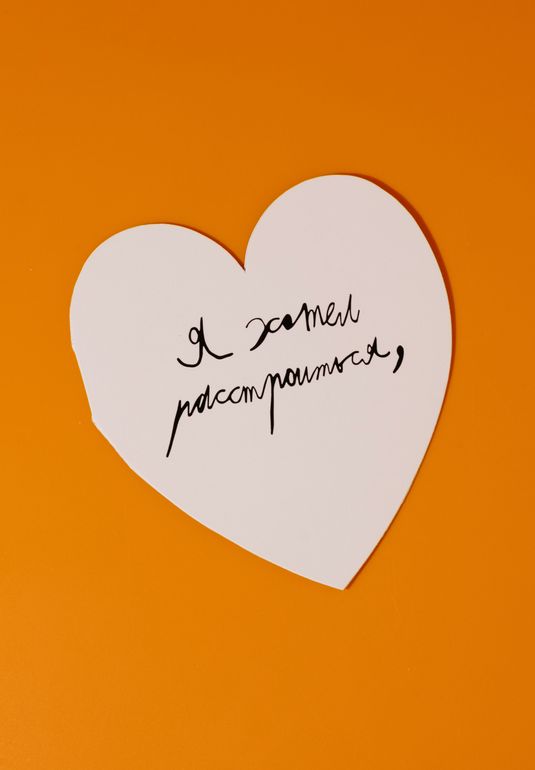 Я хотел
расстроиться,